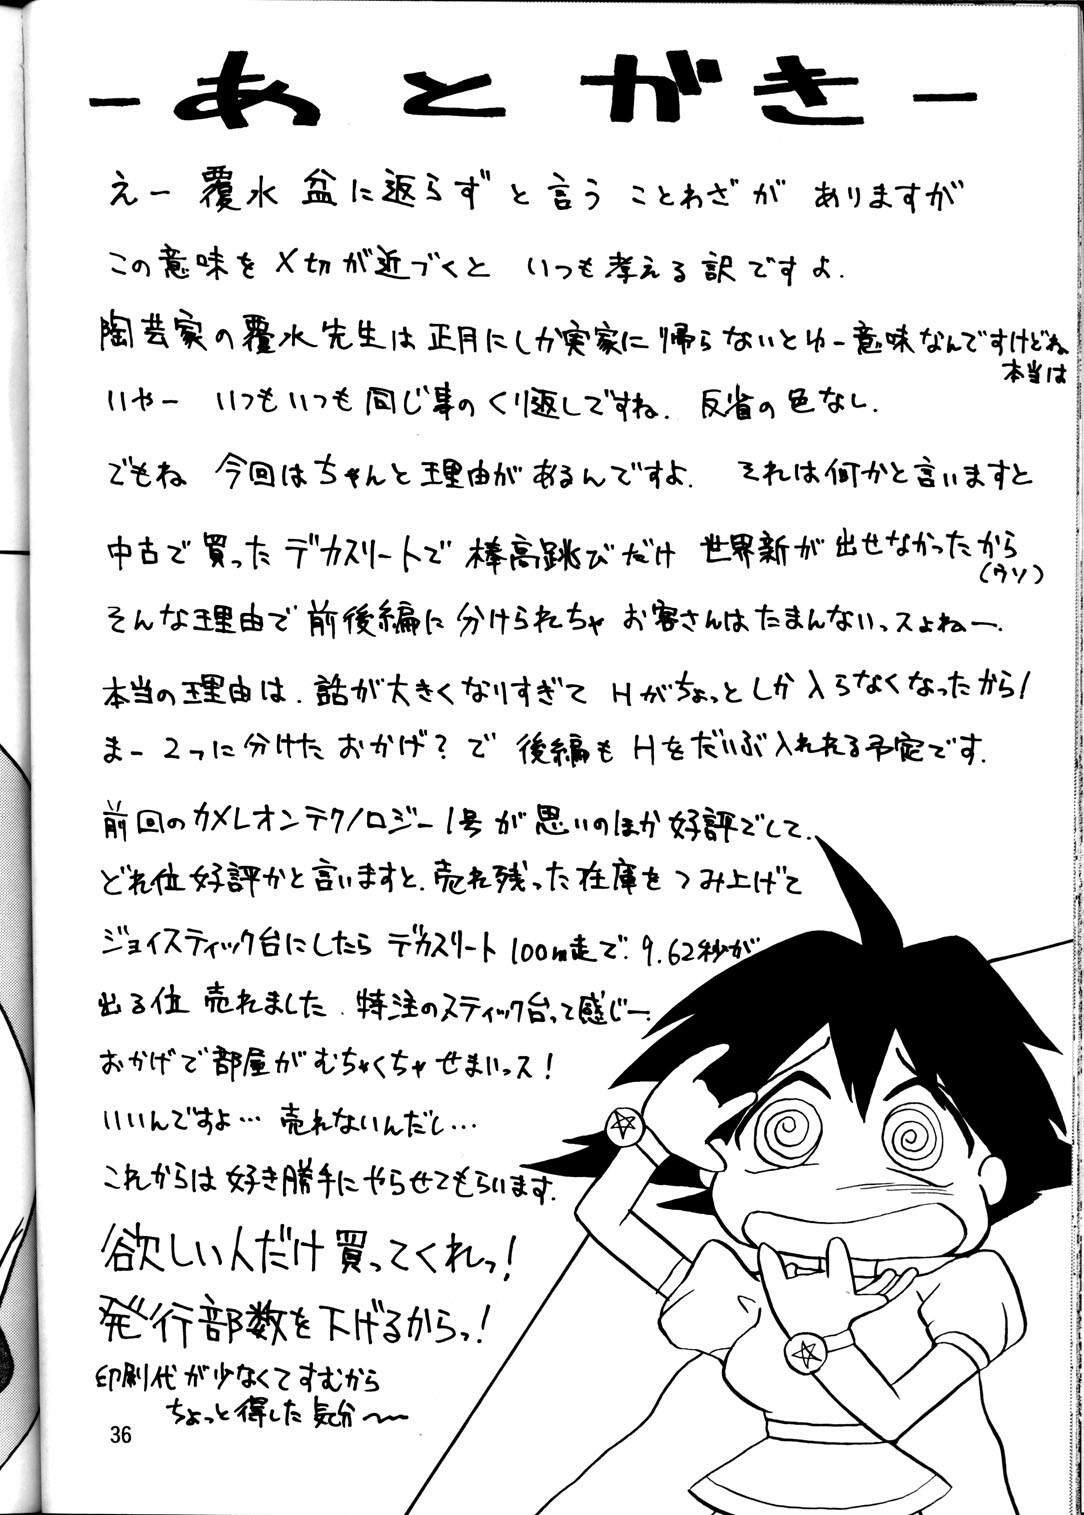 －あとがき－
えー 覆水 盆に返らず と 言う ことわざが ありますが
この意味を 〆切が近づくと いつも考える訳ですよ.
陶芸家の覆水先生は正月にしか実家に帰らないとゆー意味なんですけどね
本当は
いやー いつもいつも同じ事のくり返しですね. 反省の色なし.
でもね 今回はちゃんと理由があるんですよ. それは何かと言いますと
中古で買ったデカスリートで棒高跳びだけ 世界新が出せなかったから
(ウソ)
そんな理由で前後編に分けられちゃ お客さんはたまんないっスよねー.
本当の理由は. 話が大きくなりすぎて Hがちょっとしか入らなくなったから!
まー 2つに分けたおかげ?で 後編も Hをだいぶ入れれる予定です.
前回のカメレオンテクノロジー1号が思いのほか好評でして.
どれ位好評かと言いますと. 売れ残った在庫をつみ上げて
ジョイスティック台にしたら デカスリート 100m走で. 9.62秒が
出る位 売れました. 特注のスティック台って感じー.
おかげで部屋がむちゃくちゃせまいっス!
いいんですよ… 売れないんだし…
これからは好き勝手にやらせてもらいます.
欲しい人だけ買ってくれっ!
発行部数を下げるからっ!
印刷代が少なくてすむから
ちょっと得した気分〜
36